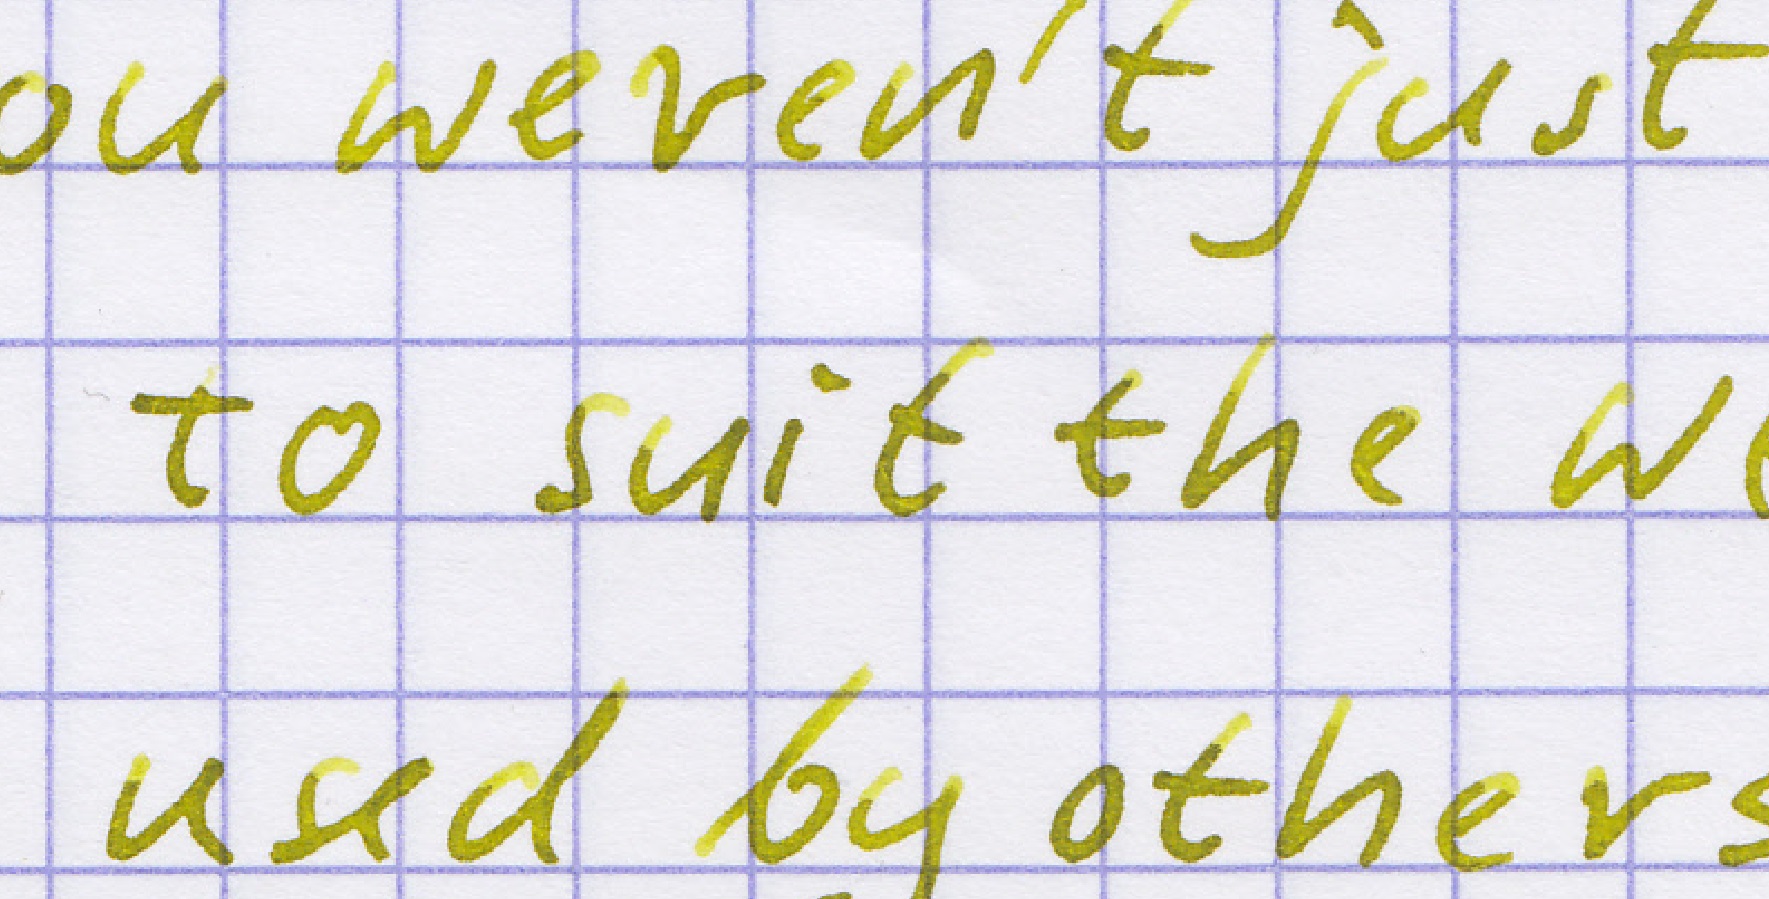 ou weren't just
to suit the we
used by others